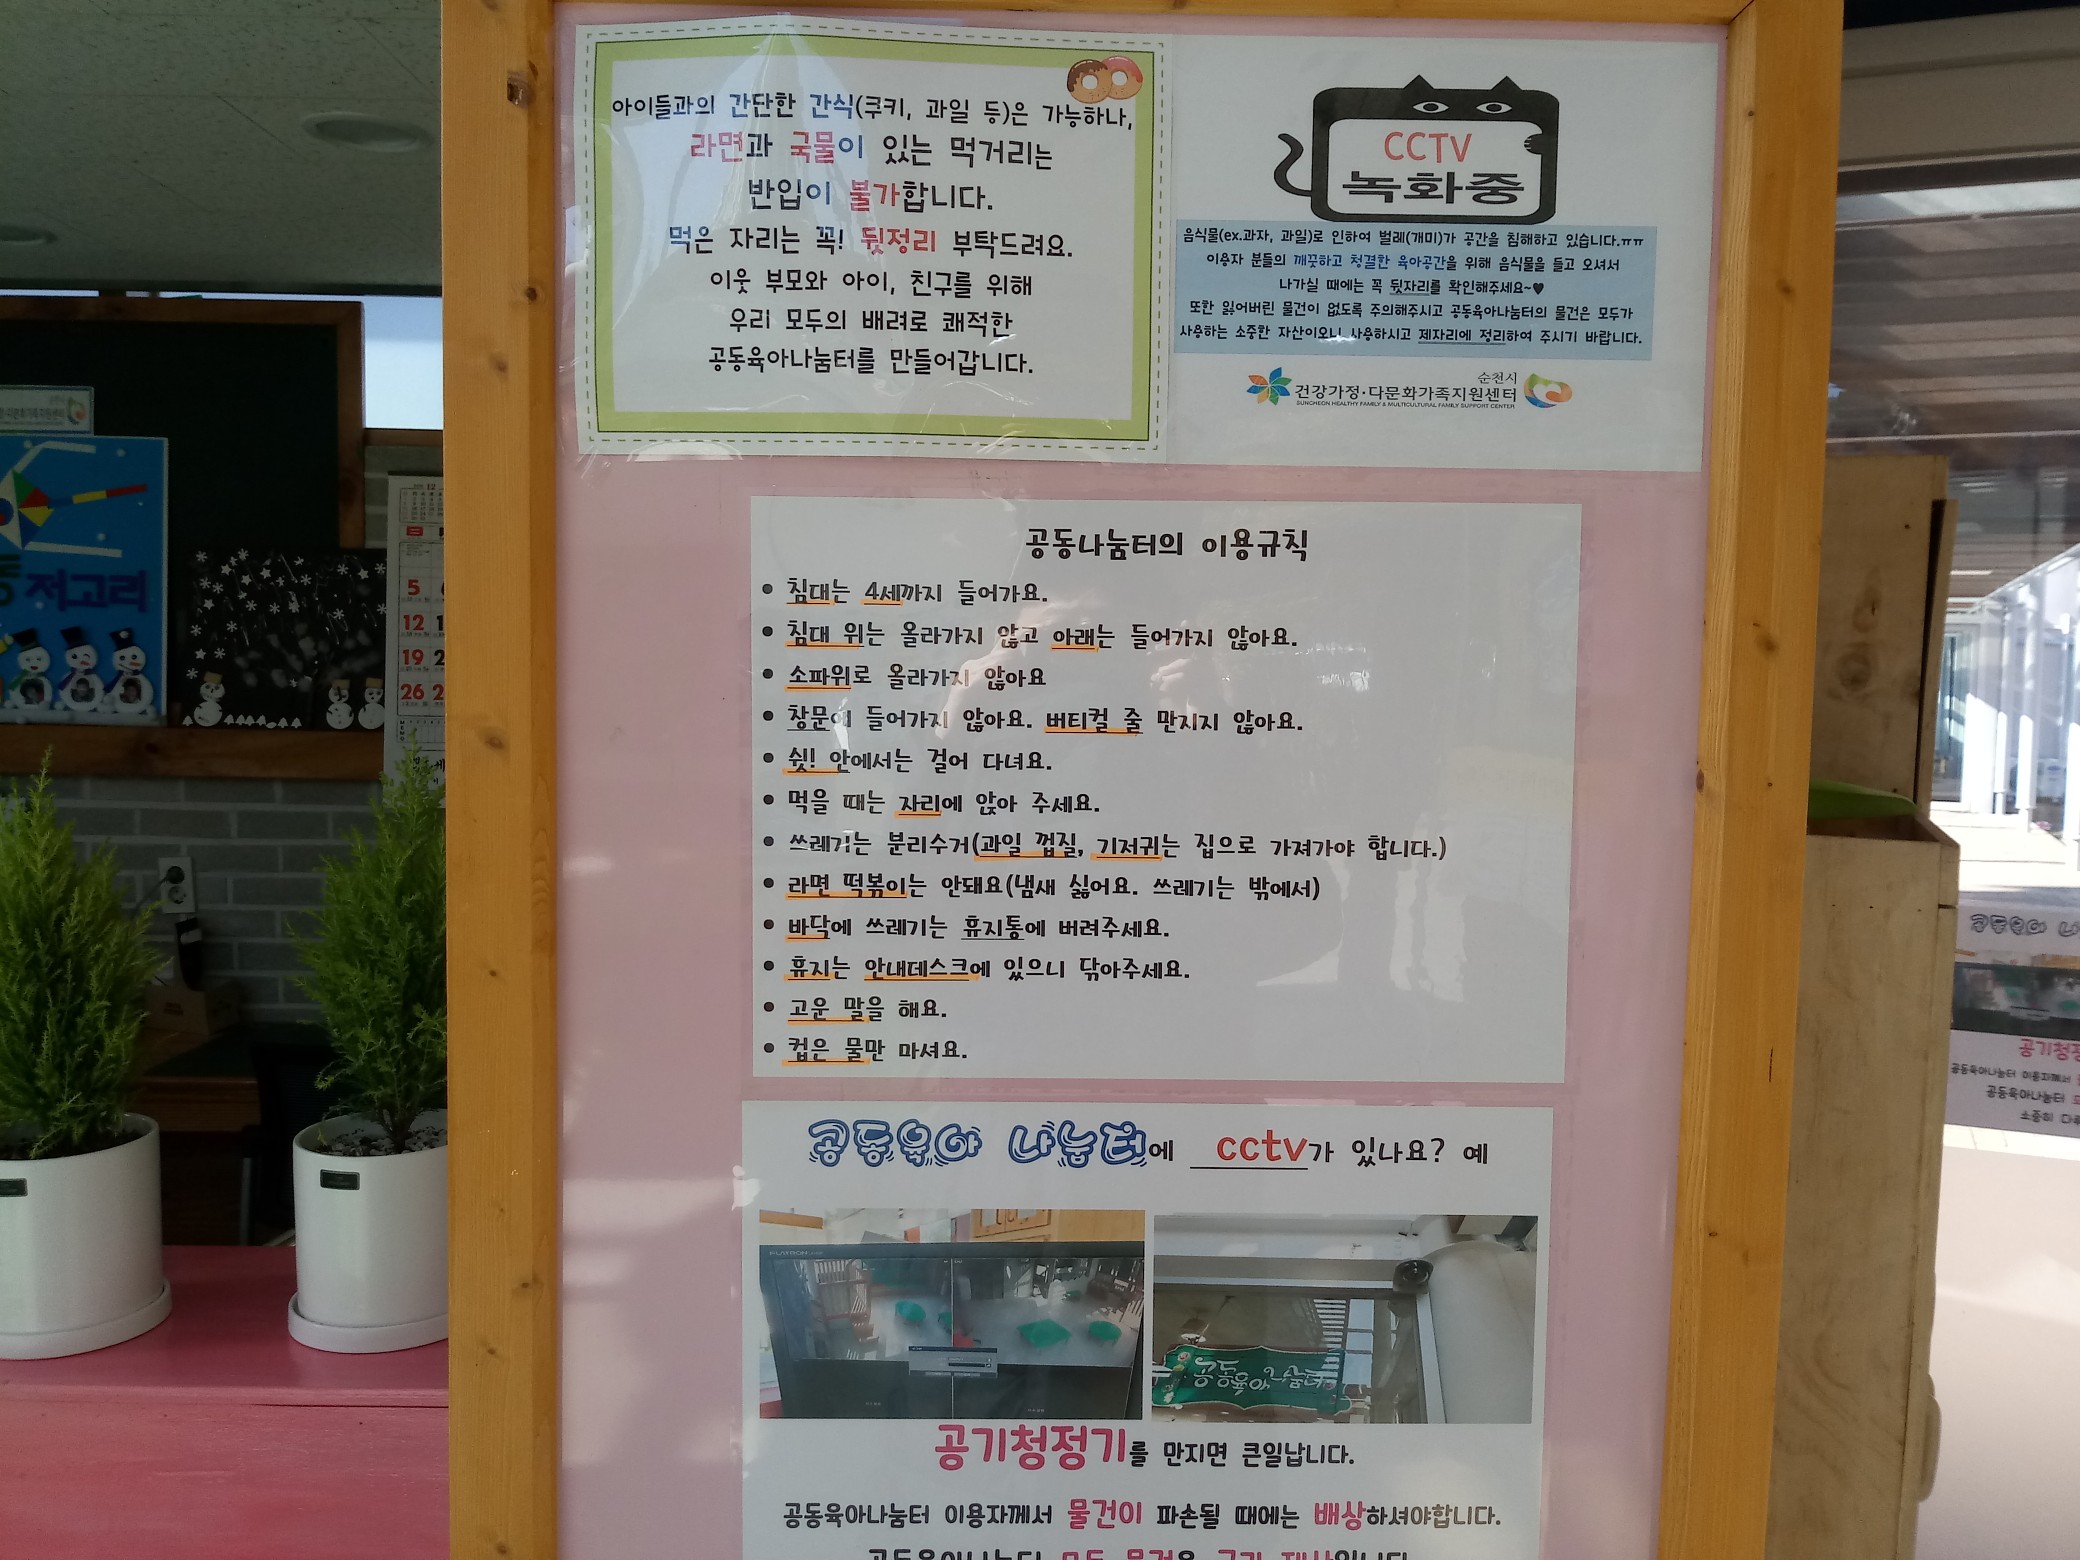 아이들과의 간단한 간식(쿠키, 과일 등)은 가능하나,
라면과 국물이 있는 먹거리는
반입이 불가합니다.
먹은 자리는 꼭! 뒷정리 부탁드려요.
이웃 부모와 아이, 친구를 위해
우리 모두의 배려로 쾌적한
공동육아나눔터를 만들어갑니다.
CCTV
녹화중
음식물(ex.과자, 과일)로 인하여 벌레(개미)가 공간을 침해하고 있습니다.ㅠㅠ
이용자 분들의 깨끗하고 청결한 육아공간을 위해 음식물을 들고 오셔서
나가실 때에는 꼭 뒷자리를 확인해주세요~♥
또한 잃어버린 물건이 없도록 주의해주시고 공동육아나눔터의 물건은 모두가
사용하는 소중한 자산이오니 사용하시고 제자리에 정리하여 주시기 바랍니다.
순천시
건강가정·다문화가족지원센터
SUNCHEON HEALTHY FAMILY & MULTICULTURAL FAMILY SUPPORT CENTER
공동나눔터의 이용규칙
• 침대는 4세까지 들어가요.
• 침대 위는 올라가지 않고 아래는 들어가지 않아요.
• 소파위로 올라가지 않아요
• 창문에 들어가지 않아요. 버티컬 줄 만지지 않아요.
• 쉿! 안에서는 걸어 다녀요.
• 먹을 때는 자리에 앉아 주세요.
• 쓰레기는 분리수거(과일 껍질, 기저귀는 집으로 가져가야 합니다.)
• 라면 떡볶이는 안돼요(냄새 싫어요. 쓰레기는 밖에서)
• 바닥에 쓰레기는 휴지통에 버려주세요.
• 휴지는 안내데스크에 있으니 닦아주세요.
• 고운 말을 해요.
• 컵은 물만 마셔요.
공동육아 나눔터에 cctv가 있나요? 예
FLATRON
공동육아나눔터
공기청정기를 만지면 큰일납니다.
공동육아나눔터 이용자께서 물건이 파손될 때에는 배상하셔야합니다.
저고리
5
12
19
26
공동육아
공기청정
공동육아나눔터 이용자께서
공동육아나눔터
소중히 다